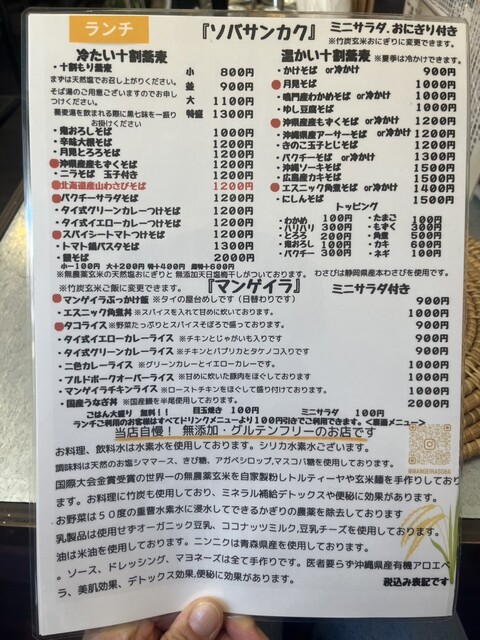 ランチ
『ソバサンカク』
ミニサラダ.おにぎり付き
※竹炭玄米おにぎりに変更できます。
冷たい十割蕎麦
・十割もり蕎麦 小 800円
まずは天然塩でお召し上がりください。 並 900円
そば湯のご用意ございますのでお申し
つけください。 大 1100円
蕎麦湯を飲まれる際に黒七味を一振り 特盛 1300円
お掛けください
・鬼おろしそば 1000円
・辛味大根そば 1200円
・月見とろろそば 1200円
・沖縄県産もずくそば 1200円
・ニラそば 玉子付き 1200円
・北海道産山わさびそば 1200円
・パクチーサラダそば 1200円
・タイ式グリーンカレーつけそば 1200円
・タイ式イエローカレーつけそば 1200円
・スパイシートマトつけそば 1200円
・トマト鍋パスタそば 1300円
・鰻そば 2000円
小ー100円 大+200円 特+400円 超特+600円
温かい十割蕎麦 ※夏季は冷かけできます。
・かけそば or冷かけ 900円
・月見そば 1000円
・鳴門産わかめそば or冷かけ 1000円
・ゆし豆腐そば 1000円
・沖縄県産もずくそば or冷かけ 1200円
・沖縄県産アーサーそば or冷かけ 1200円
・きのこ玉子とじそば 1200円
・パクチーそば or冷かけ 1300円
・沖縄ソーキそば 1500円
・広島産カキそば 1500円
・エスニック角煮そば or冷かけ 1400円
・にしんそば 1500円
トッピング
・わかめ 100円 ・たまご 100円
・バリバリ 300円 ・もずく 300円
・とろろ 200円 ・角煮 500円
・鬼おろし 100円 ・カキ 600円
・パクチー 300円 ・ネギ 100円
※無農薬玄米の天然塩おにぎりと 無添加天日塩梅干しがついております。 わさびは静岡県産本わさびを使用です。
※竹炭玄米ご飯に変更できます。
『マンゲイラ』
ミニサラダ付き
・マンゲイラぶっかけ飯 ※タイの屋台めしです(日替わりです) 900円
・エスニック角煮丼 ※スパイスを入れて甘めに炊いております。 1000円
・タコライス ※野菜たっぷりとスパイスそぼろで盛っております。 900円
・タイ式イエローカレーライス ※チキンとじゃがいも入りです 900円
・タイ式グリーンカレーライス ※チキンとパプリカとタケノコ入りです 900円
・二色カレーライス ※グリーンカレーとイエローカレーです。 1000円
・プルドポークオーバーライス ※甘めに炊いた豚肉をほぐしております 1000円
・マンゲイラチキンライス ※ローストチキンをほぐして盛り付けております。 1000円
・国産うなぎ丼 ※国産鰻を半尾使用しております。 2000円
ごはん大盛り 無料!! 目玉焼き 100円 ミニサラダ 100円
ランチご利用のお客様はすべてドリンクメニューより100円引きでご利用できます。<裏面メニュー>
当店自慢! 無添加・グルテンフリーのお店です
お料理、飲料水は水素水を使用しております。シリカ水素水ございます。
調味料は天然のお塩シママース、きび糖、アガベシロップ,マスコバ糖を使用しています。
@MANGEIRASOBA
国際大会金賞受賞の世界一の無農薬玄米を自家製粉しトルティーヤや玄米麺を手作りしており
ます。お料理に竹炭も使用しており、ミネラル補給デトックスや便秘に効果があります。
お野菜は50度の重曹水素水に浸水してできるかぎりの農薬を除去しております
乳製品は使用せずオーガニック豆乳、ココナッツミルク,豆乳チーズを使用しております。
油は米油を使用しております。ニンニクは青森県産を使用しております。
。ソース、ドレッシング、マヨネーズは全て手作りです。医者要らず沖縄県産有機アロエベ
ラ、美肌効果、デトックス効果,便秘に効果があります。
税込み表記です